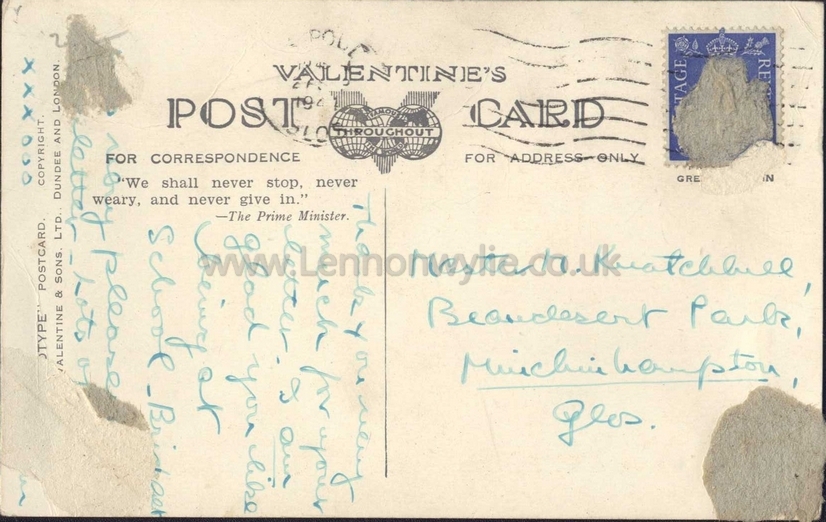 VALENTINE'S
POST CARD
THROUGHOUT
FOR CORRESPONDENCE
FOR ADDRESS ONLY
"We shall never stop, never
weary, and never give in."
—The Prime Minister.
Thank you very
much for your
letter. I am
glad you like
being at
School
please
letter - Lots of
xxx ooo
OTYPE" POSTCARD. COPYRIGHT.
VALENTINE & SONS, LTD., DUNDEE AND LONDON
Master N. Knatchbull,
Beaudesert Park,
Minchinhampton,
Glos.
www.Lennonwylie.co.uk